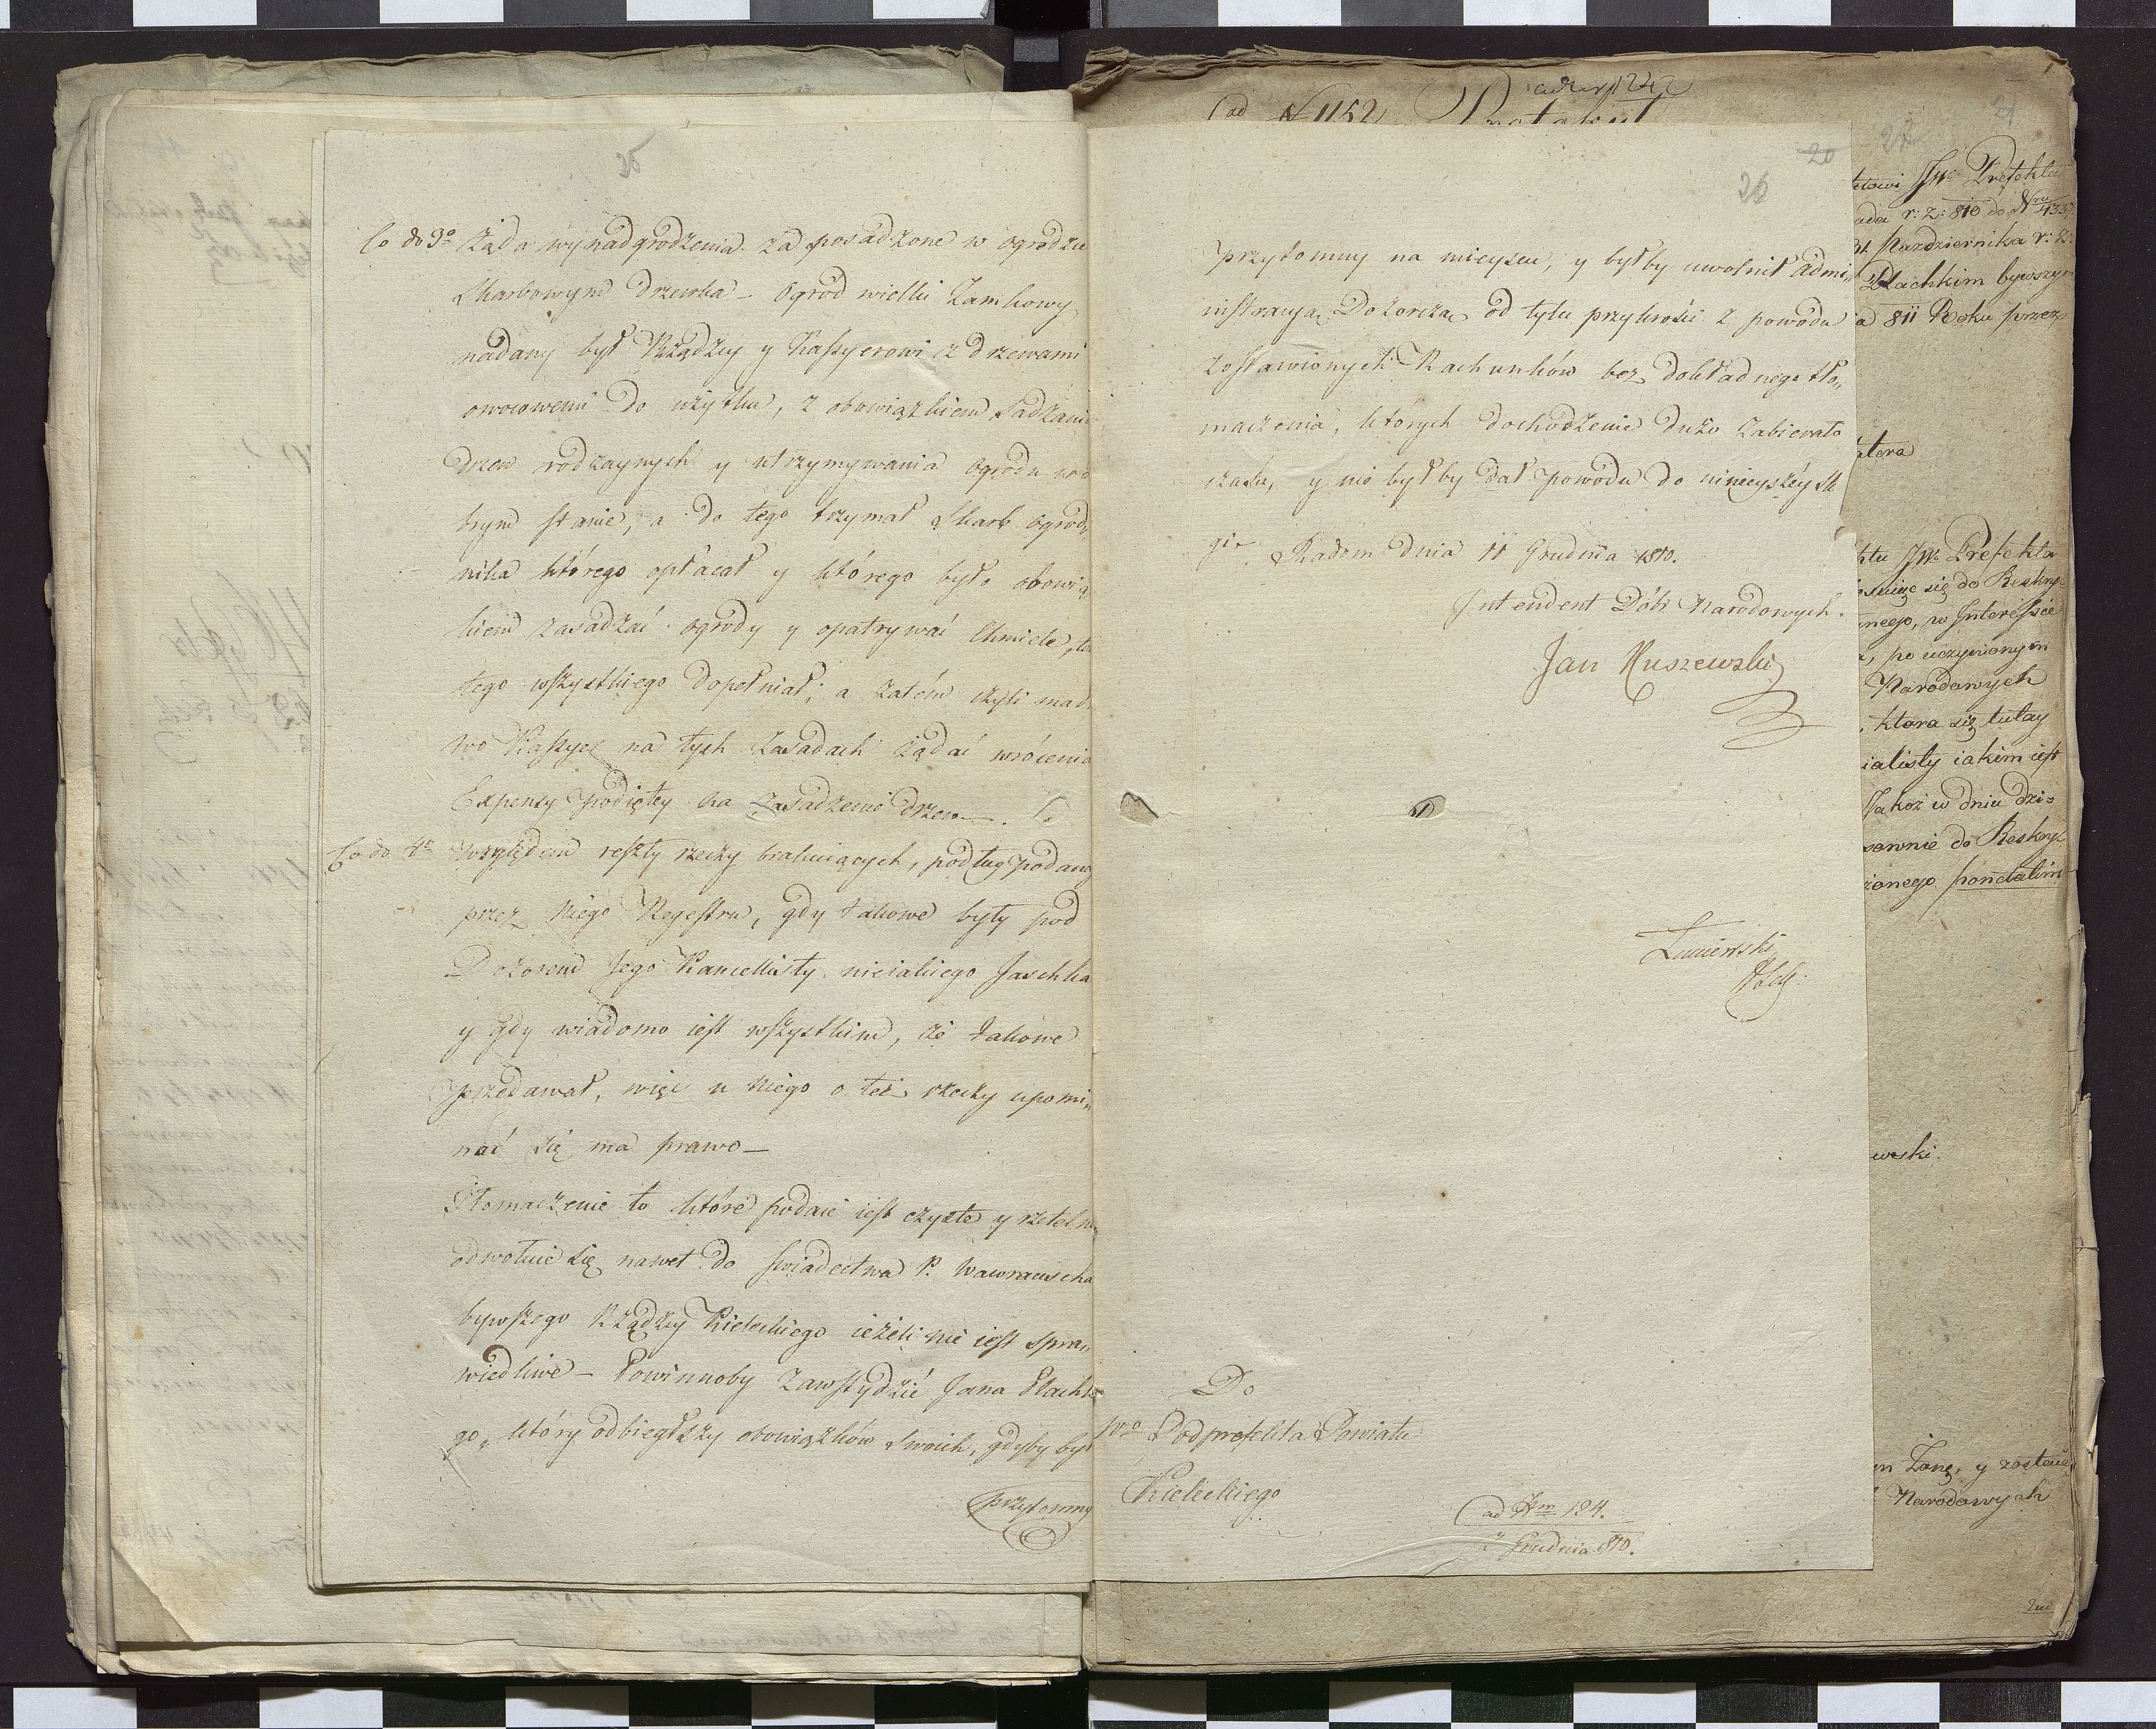 25
Co do 3o Żąda wynadgrodzenia za posadzone w ogrodzie
Skarbowym drzewka – Ogród wielki Zamkowy
nadany był Rządzcy y Kassyerowi z drzewami
owocowemi do użytku, z obowiązkiem sadzania
drzew rodzaynych y utrzymywania Ogrodu w do
brym stanie, a do tego trzymał Skarb Ogrod„
nika którego opłacał y którego było obowią
kiem zasadzać ogrody y opatrywać Chmiele, 
tego wszystkiego dopełniał; a zatém czyli ma 
wo Kassyer na tych zasadach żądać wrócenia
Expensy podiętey na zasadzenie drzew –.
Co do 4o Względem reszty rzeczy brakuiących, podług podane
przez Niego Regestru, gdy takowe były pod
Dozorem Jego Kancellisty nieiakiego Jaschka
y gdy wiadomo iest wszystkim, że takowe
przedawał, więc u Niego o też rzeczy upomi„
nać się ma prawo –
Tłomaczenie to które podaie iest czyste y rzetelne
odwołuie się nawet do swiadectwa P. Wawrauscha
bywszego Rządzcy Kieleckiego ieżeli nie iest spra„
wiedliwe – Powinnoby zawstydzić Jana Plachki
go, który odbiegłszy obowiązków swoich, gdyby był
przytomny
20
26
przytomny na mieyscu, y byłby uwolnił admi„
nistracyą Dozorczą od tylu przykrości z powodu
zostawionych Rachunków bez dokładnego tło„
maczenia, których dochodzenie dużo zabierało
czasu, y nie byłby dał powodu do ninieyszéy sk
gi. Radom dnia 11 Grudnia 1810.
Intendent Dóbr Narodowych.
Jan Kuszewski
Do
Podprefekta Powiatu
Kieleckiego
ad Num 184.
Grudnia 810.
ad N 1152
Protokuł
21
JW Prefekta
ada r: z: 810 do Nru 4337
31. Pazdziernika r: z:
Plachkim bywszym
811 Roku przez
JW Prefekta
się do Reskry„
nego, w Interessie
po uczynionym
Narodowych
, ktora się tutay
ialisty iakim iest
Jakoż w dniu dzi„
sownie do Reskry„
żonego
ewski.
Żonę, y zostaie
Narodowych